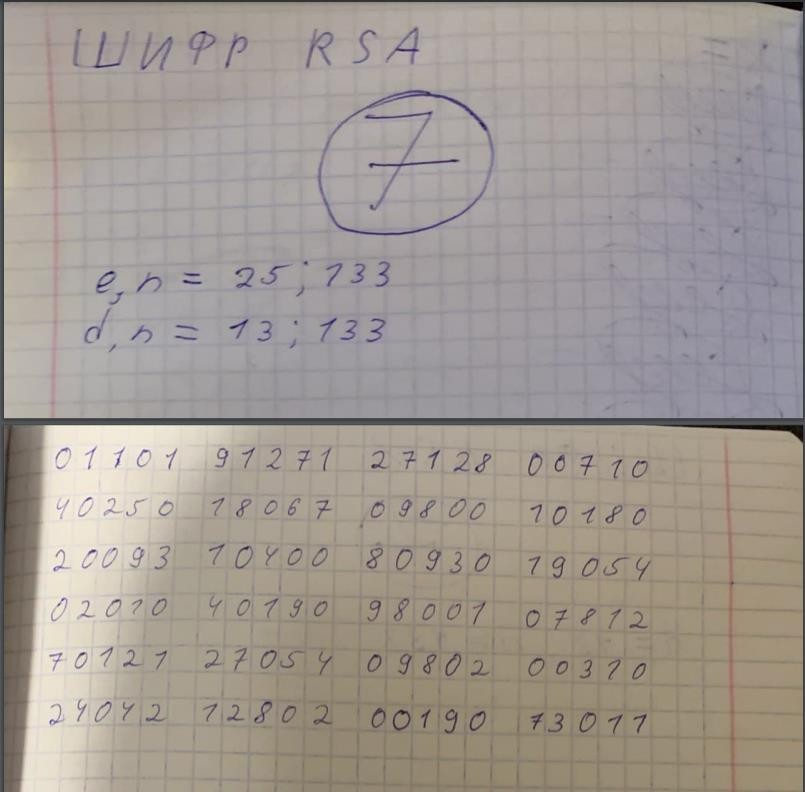 ШИФР RSA
7
e, n = 25; 133
d, n = 13; 133
01101 91271 27128 00710
40250 18067 09800 10180
20093 10400 80930 19054
02010 40190 98001 07812
70121 27054 09802 00310
24042 12802 00190 73011